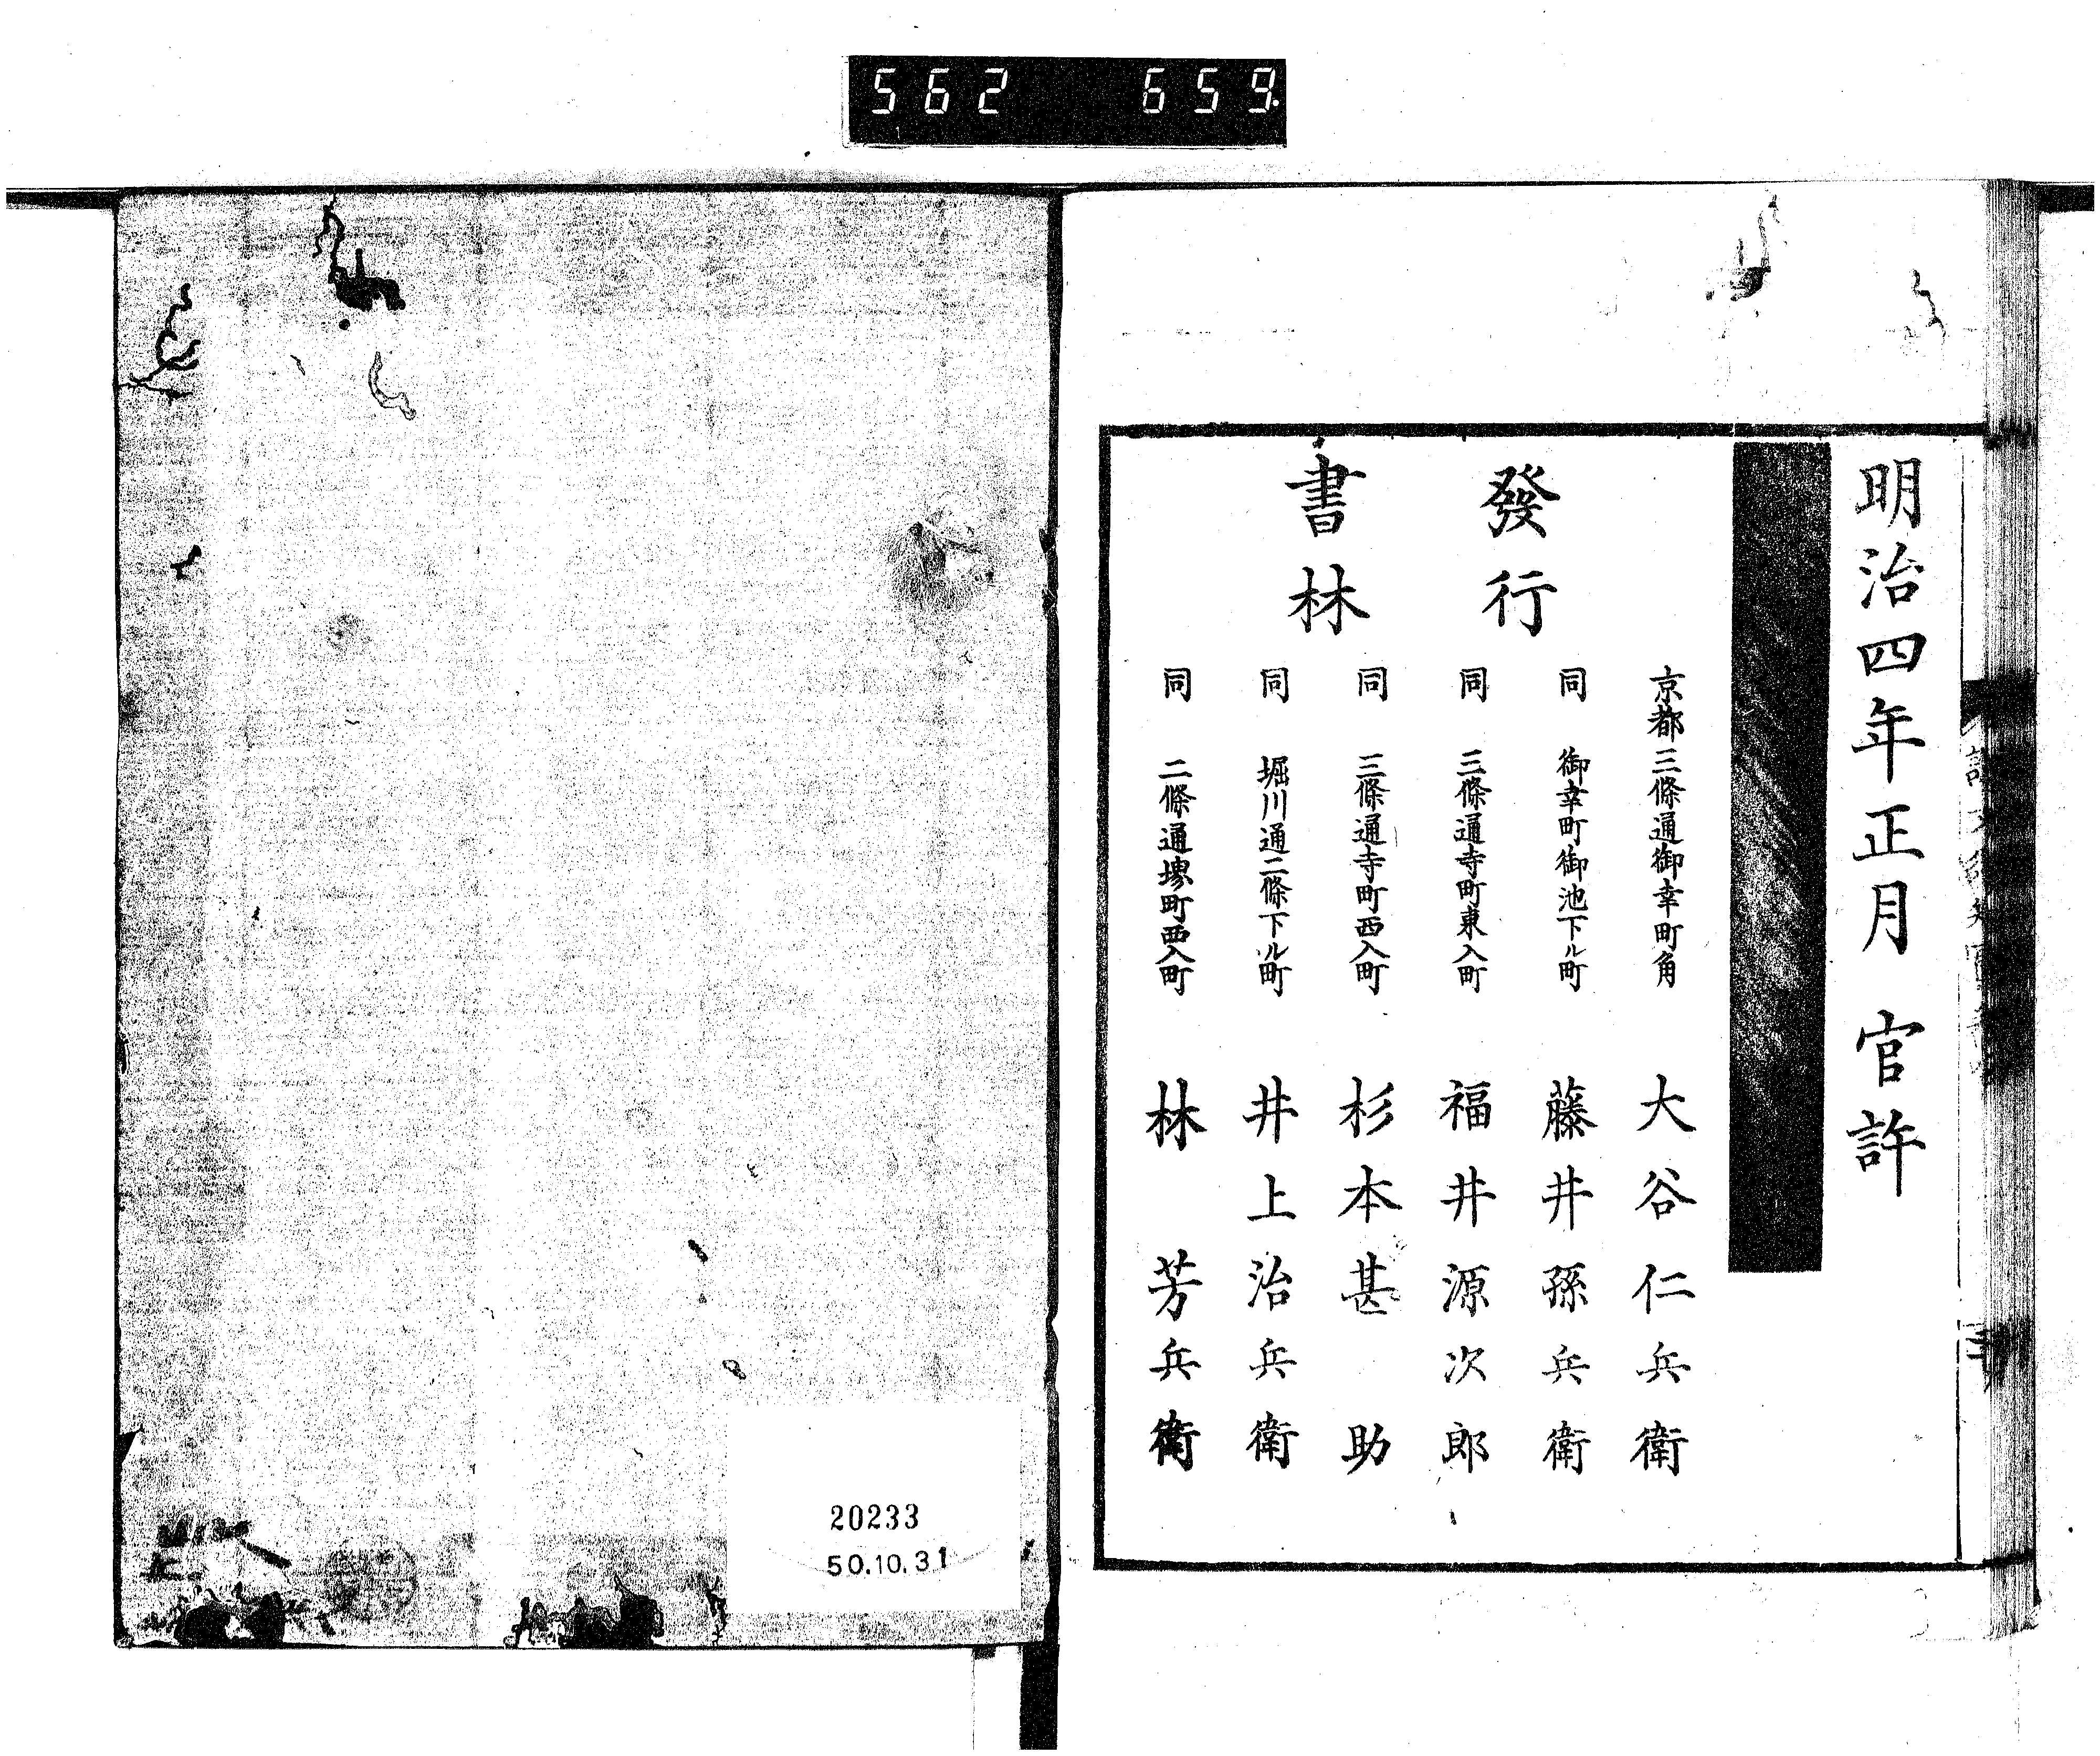 562 659
明治四年正月 官許
發行
書林
京都 三條通御幸町角 大谷仁兵衛
同 御幸町御池下ル町 藤井孫兵衛
同 三條通寺町東入町 福井源次郎
同 三條通寺町西入町 杉本甚助
同 堀川通二條下ル町 井上治兵衛
同 二條通堺町西入町 林芳兵衛
20233
50.10.31